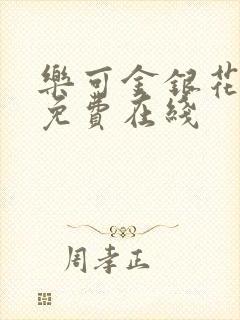 樂可金銀花
免費在綫
周孝正